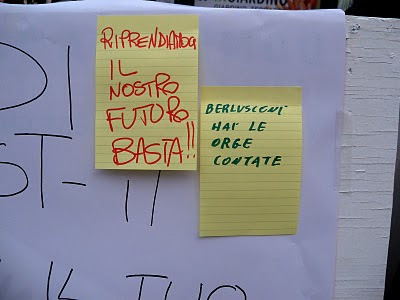 RIPRENDIAMOCI
IL
NOSTRO
FUTURO
BASTA!!
BERLUSCONI
HAI LE
ORGE
CONTATE
DI
ST-IT
IL TUO